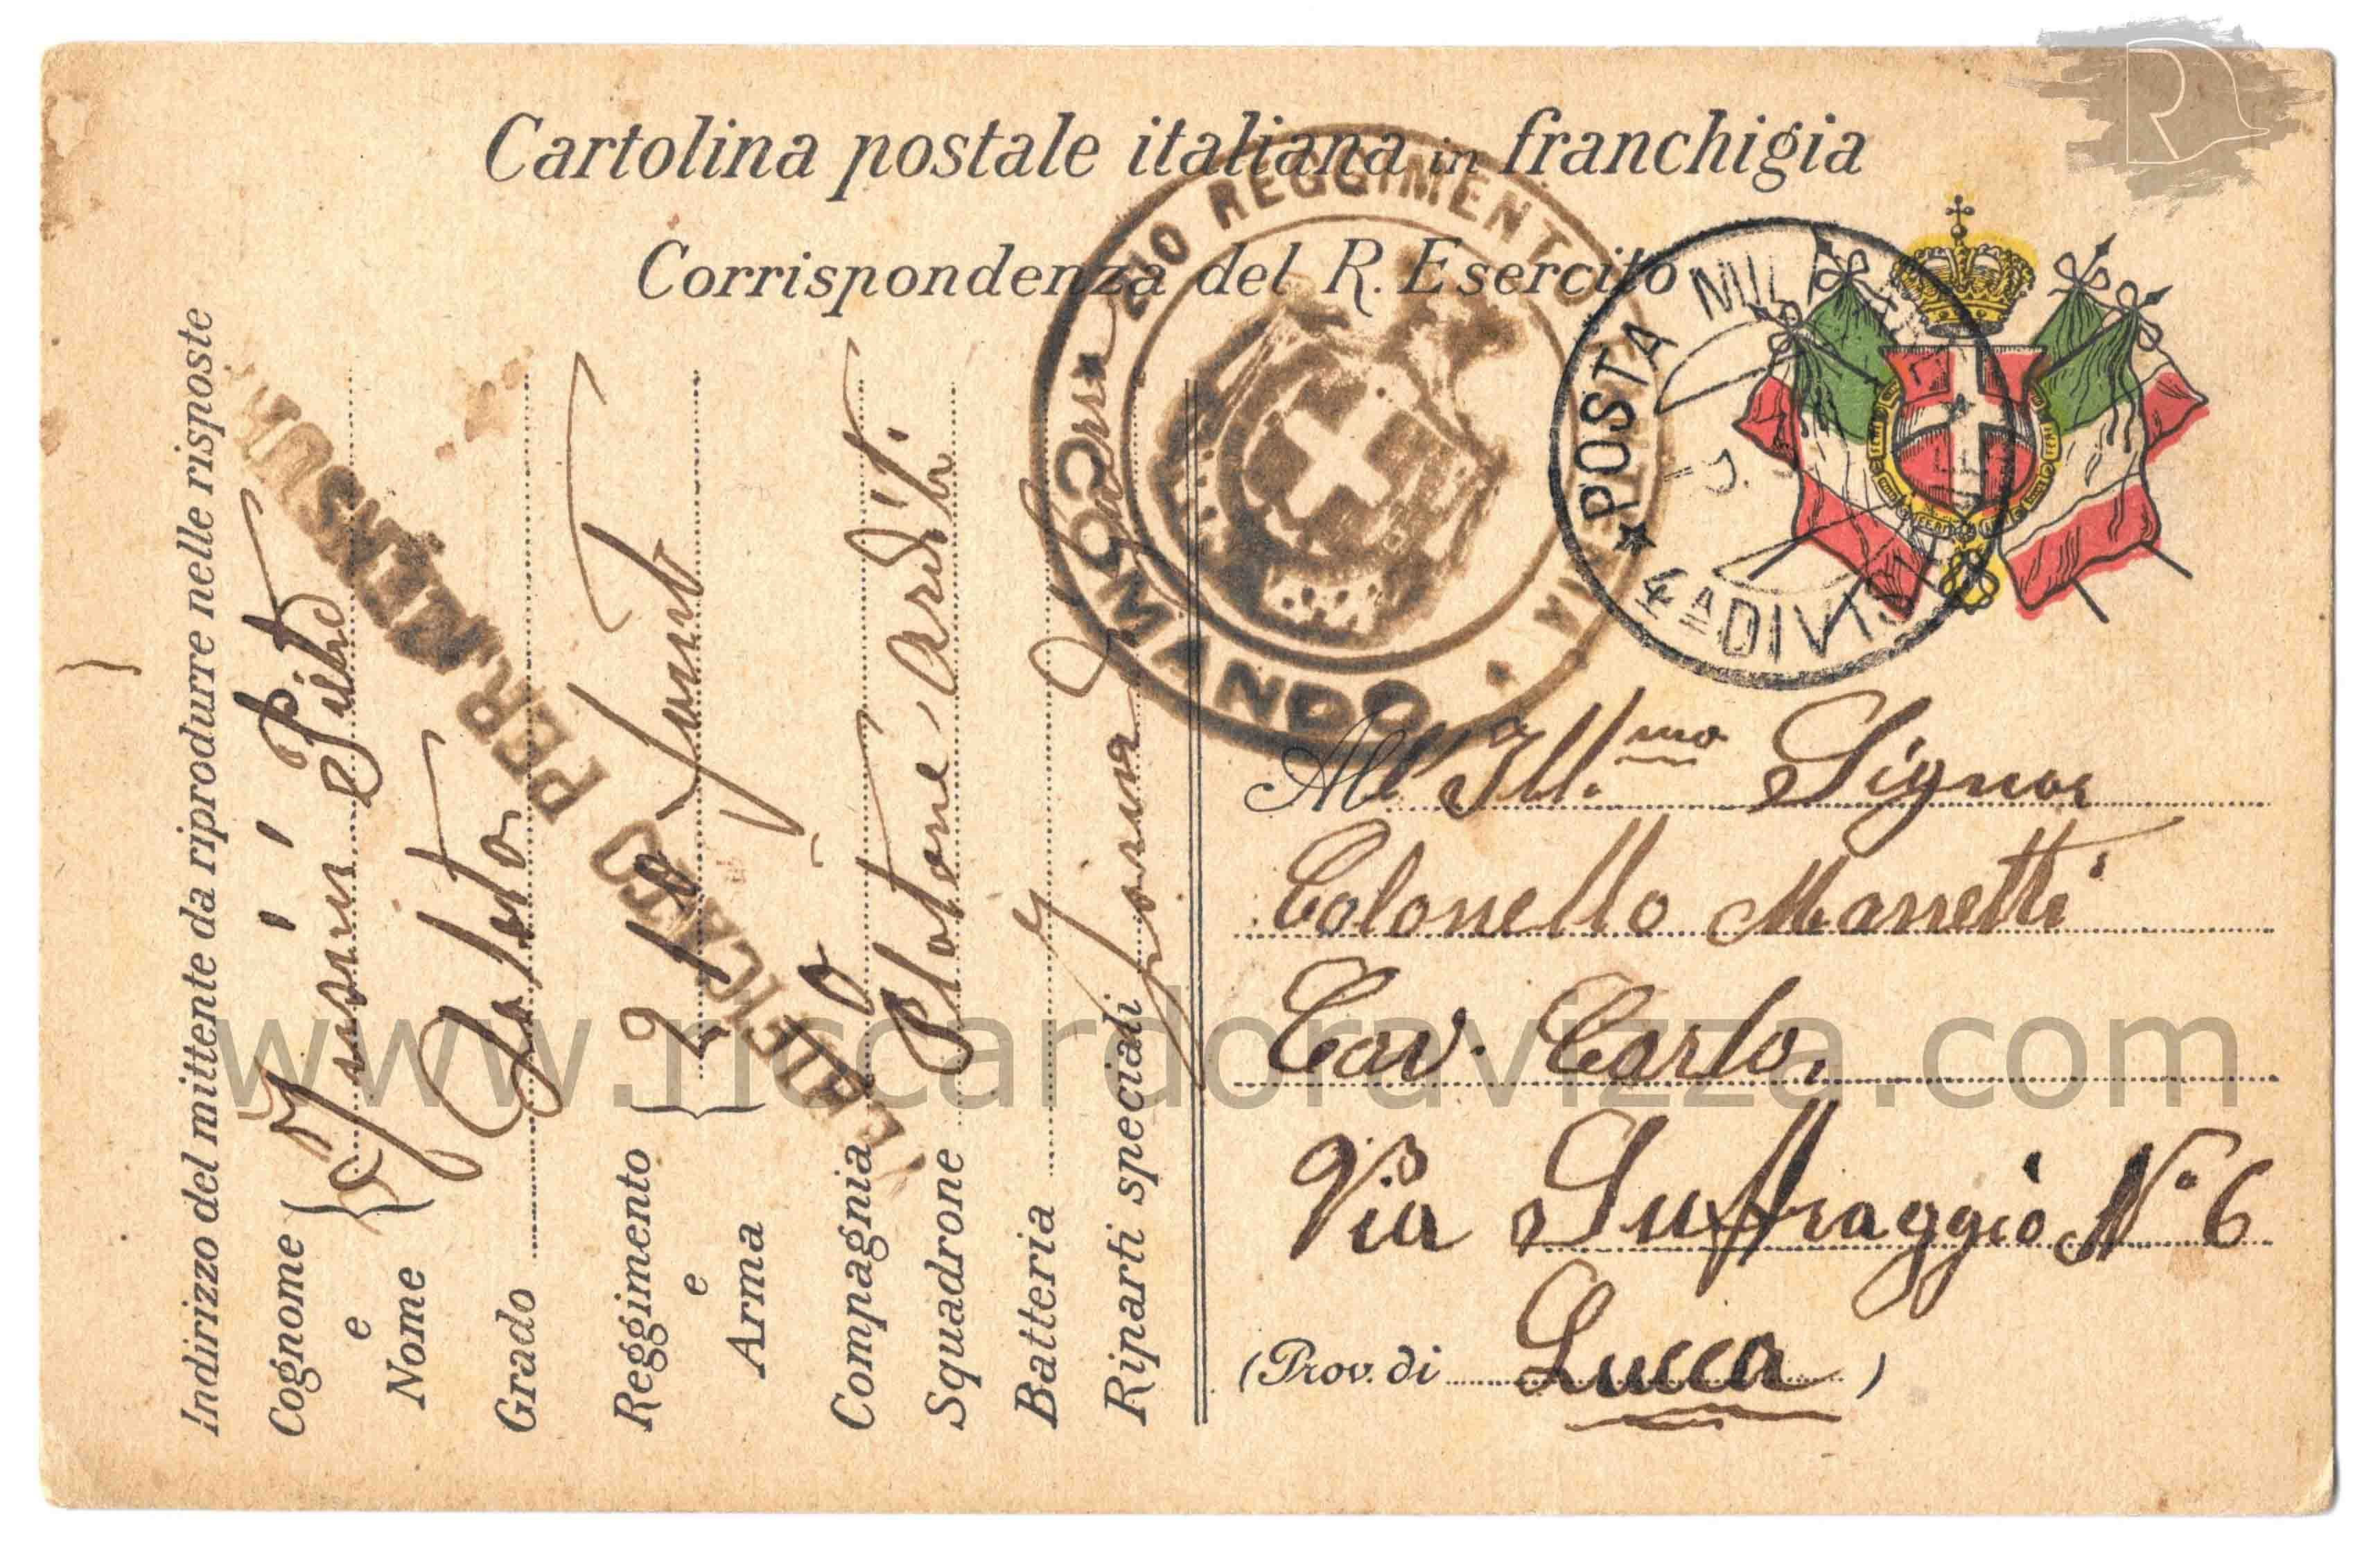 Cartolina postale italiana in franchigia
Corrispondenza del R. Esercito
REGGIMENTO
COMANDO
POSTA MILITARE
4A DIVIS
Indirizzo del mittente da riprodurre nelle risposte
Cognome
e
Nome
Pietro
Grado
Reggimento
e
Arma
210 Fant
Compagnia
Squadrone
Plotone Arditi
Batteria
Zona
Riparti speciali
Guerra
VERIFICATO PER CENSURA
All'Ill.mo Signor
Colonello Mannetti
Cav. Carlo.
Via Suffraggio N° 6
(Prov. di Lucca)
R
www.riccardoravizza.com